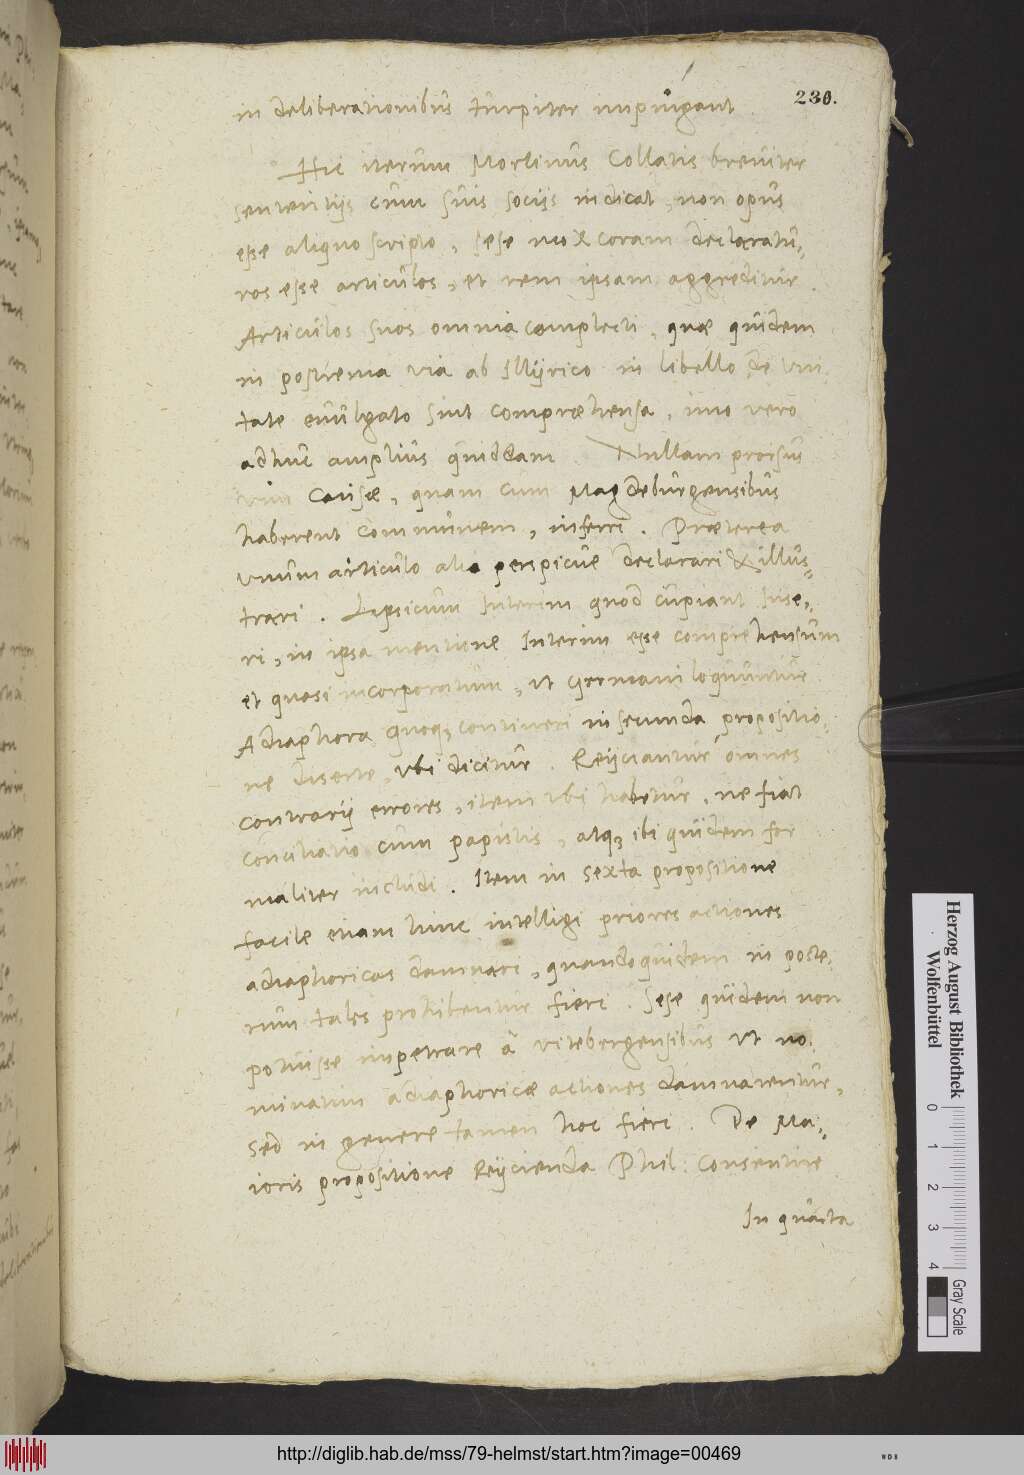 230.
in deliberationibus turpiter impingant
Hic iterum Morlinus Collatis breviter
sententijs cum suis socijs indicat, non opus
esse aliquo scripto, sese mox coram declaratu-
ros esse articulos, et rem ipsam aggreditur.
Articulos suos omnia complecti, quæ quidem
in postrema via ab Illyrico in libello de Uni
tate evulgato sint comprehensa, imo vero
adhuc amplius quiddam. Nullam prorsus
vim Causæ, quam cum Magdeburgensibus
haberent communem, inferri. Præterea
unum articulo alio perspicue declarari & illus-
trari. Lipsicum Interim quod cupiant inse-
ri, in ipsa mentione Interim esse comprehensum
et quasi incorporatum, ut Germani loquuntur
Adiaphora quoq; contineri in secunda propositio-
ne diserte, ubi dicitur. Reijciantur omnes
contrarij errores, item ubi habetur, ne fiat
conciliatio cum papistis, atq; ibi quidem for
maliter includi. Item in sexta propositione
facile etiam hinc intelligi priores actiones
adiaphoricas damnari, quandoquidem in poste-
rum tales prohibentur fieri. Sese quidem non
potuisse impetrare à vitebergensibus ut no-
minatim adiaphoricæ actiones damnarentur,
sed in genere tamen hoc fieri. De Ma-
ioris propositione Reijcienda Phil: consentire
In quarta
Herzog August Bibliothek
Wolfenbüttel
0 1 2 3 4
Gray Scale
http://diglib.hab.de/mss/79-helmst/start.htm?image=00469
WDB